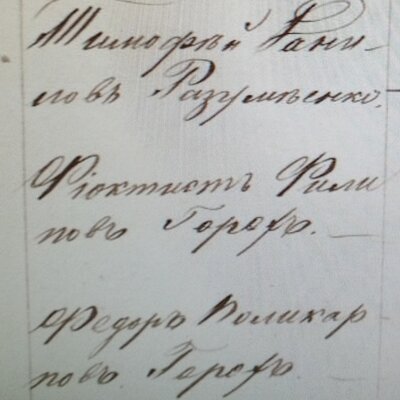 Тимофѣй Дани-
ловъ Разумѣенко.
Фіоктистъ Фили
повъ Горохъ.
Федоръ Поликар
повъ Горохъ